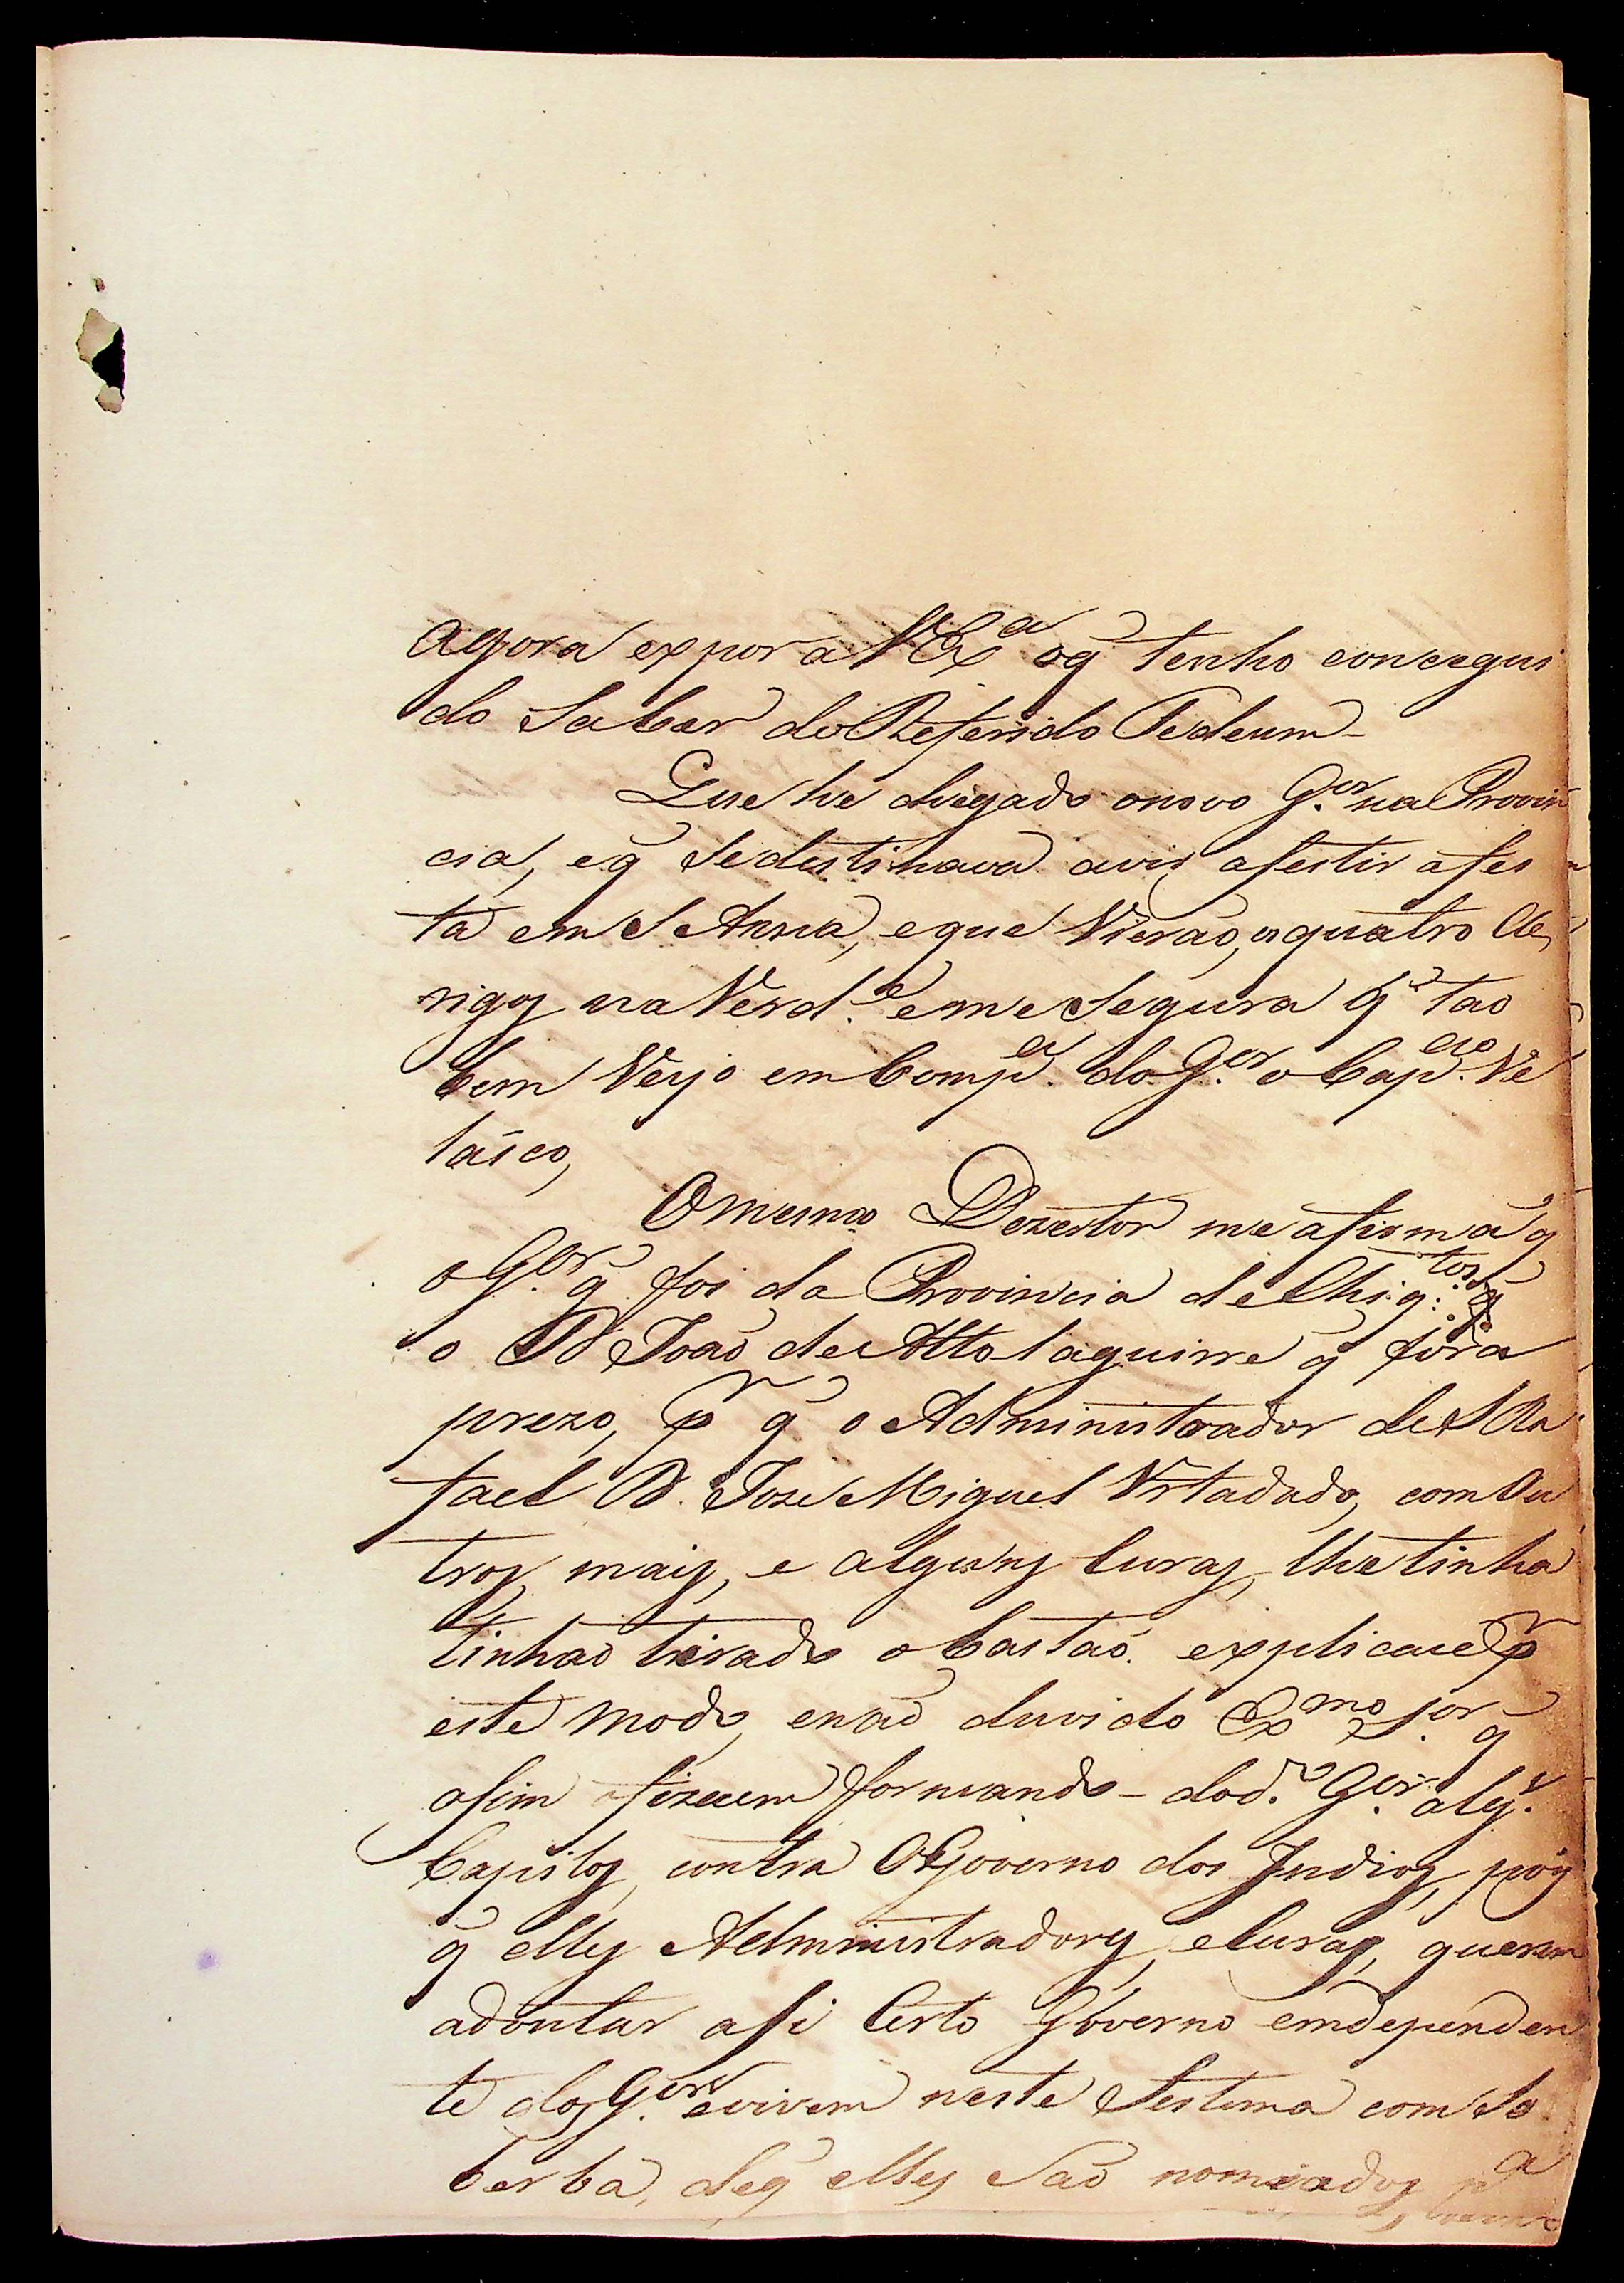 Agora expor a V Ex.ª oq̃ tenho consegui
do Saber do Referido Tedeum-
Que he chegado onovo G.or na Provin
cia, eq̃ Sedestinava avir asestir afes
ta em S Anna, eque Vierão, os quatro Cle
rigos na Verd.e eme Segura q̃ tao
bem Veyo em Comp.a do G.or o Cap.am Ve
lásco,
Omesmo Dezertor me afirma q̃
o G.or q̃ foi da Provincia de Chiq.tos
o D João de Altolaguirre q̃ fora
prezo, pr q̃ o Administrador de S Ra
fael D. Joze Miguel Vrtadado, com Ou
tros mais, e alguns Curas, lhe tinha
tinhão tirado o bastão. explicase pr
este modo, enão duvido Ex.mo S.or q̃
asim ofizecem formando-dod.o G.or alg.s
Capitos, contra OGoverno dos Indios, pois
q̃ elles Administradores, eCuras, querem
adontar asi Certo Governo emdependen
te dos G.ores evivem neste Sestema com So
berba, deq̃ elles São nomiados p.a